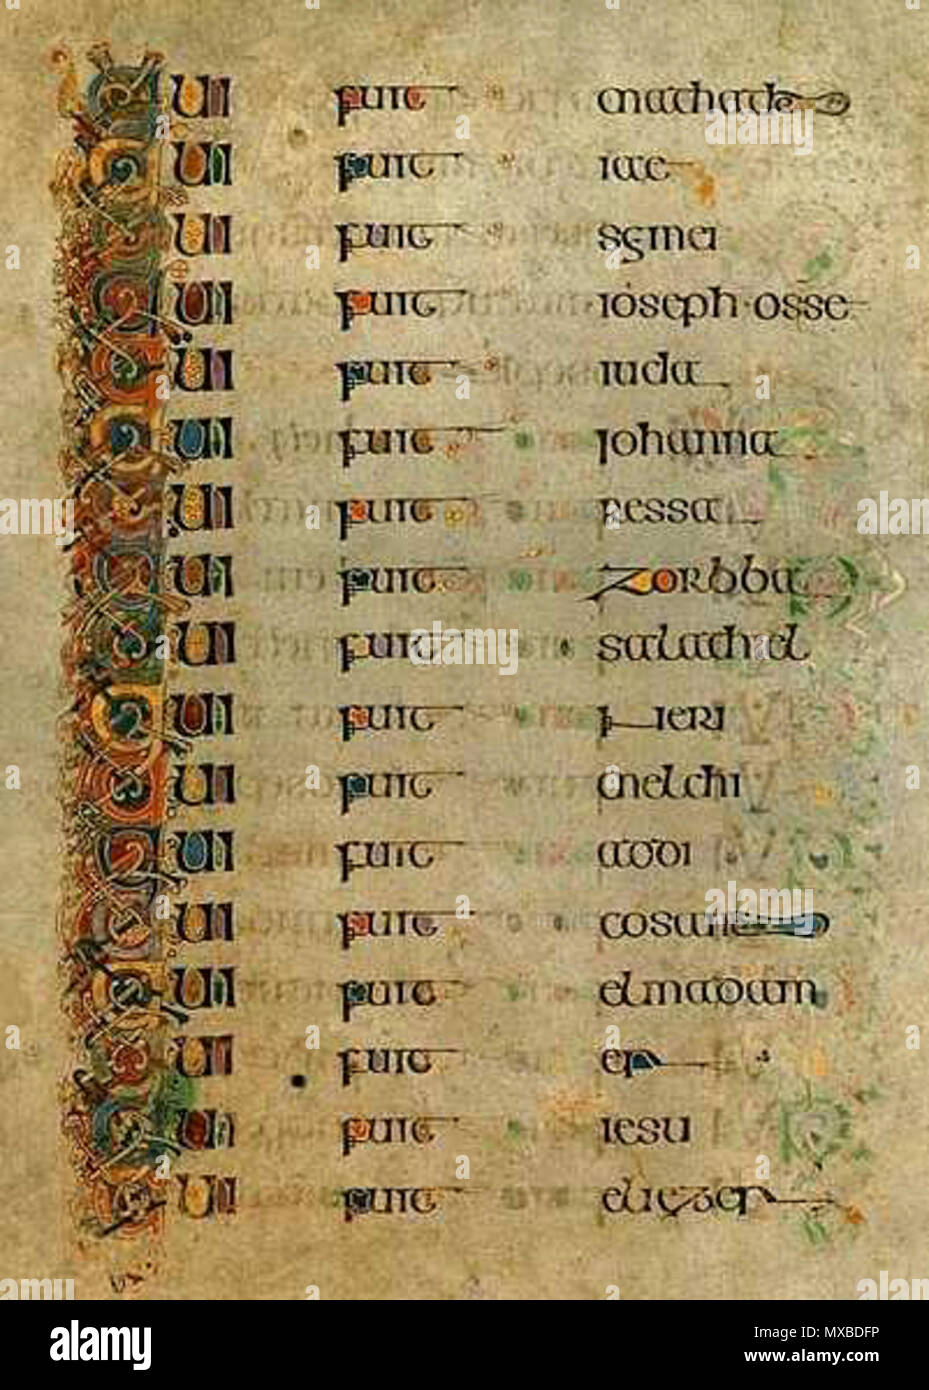 QUI fuit mathathde
QUI fuit iae
QUI fuit sginei
QUI fuit ioseph · osse
QUI fuit iuda
QUI fuit iohanna
QUI fuit ressa
QUI fuit zorbba
QUI fuit salathiel
QUI fuit neri
QUI fuit melchi
QUI fuit addi
QUI fuit cosam
QUI fuit elmadam
QUI fuit er
QUI fuit iesu
QUI fuit eliezer
alamy
Image ID: MXBDFP
www.alamy.com